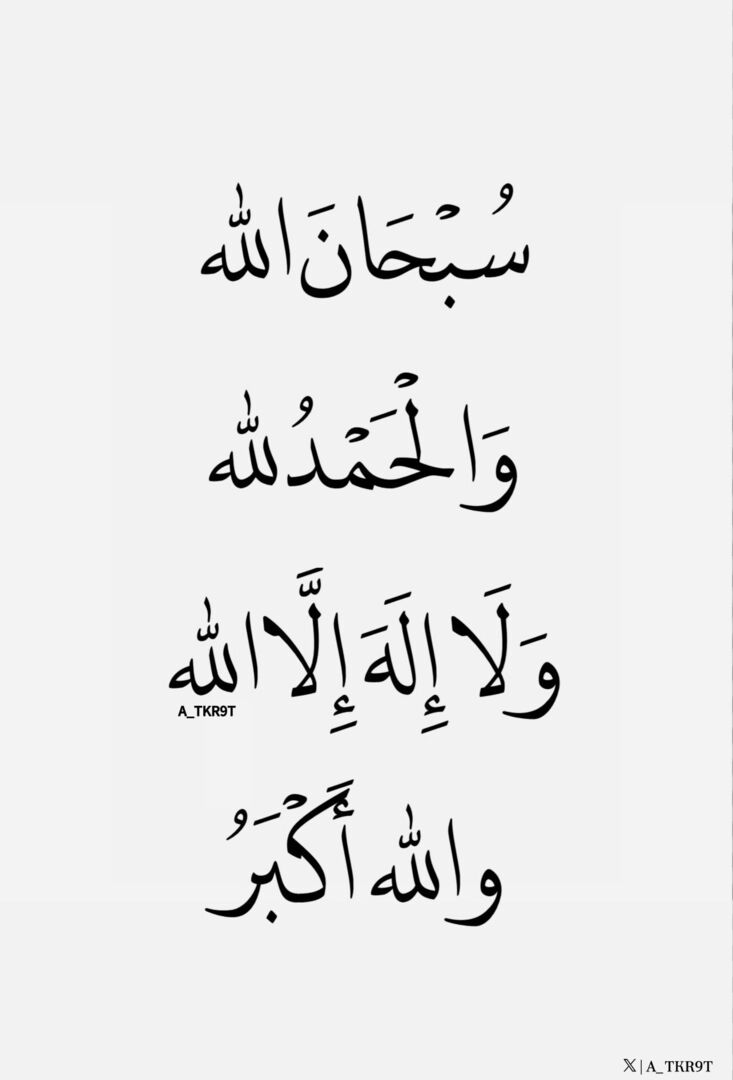 سُبْحَانَ الله
وَالْحَمْدُ لله
وَلَا إِلَهَ إِلَّا الله
A_TKR9T
والله أَكْبَرُ
𝕏 | A_TKR9T